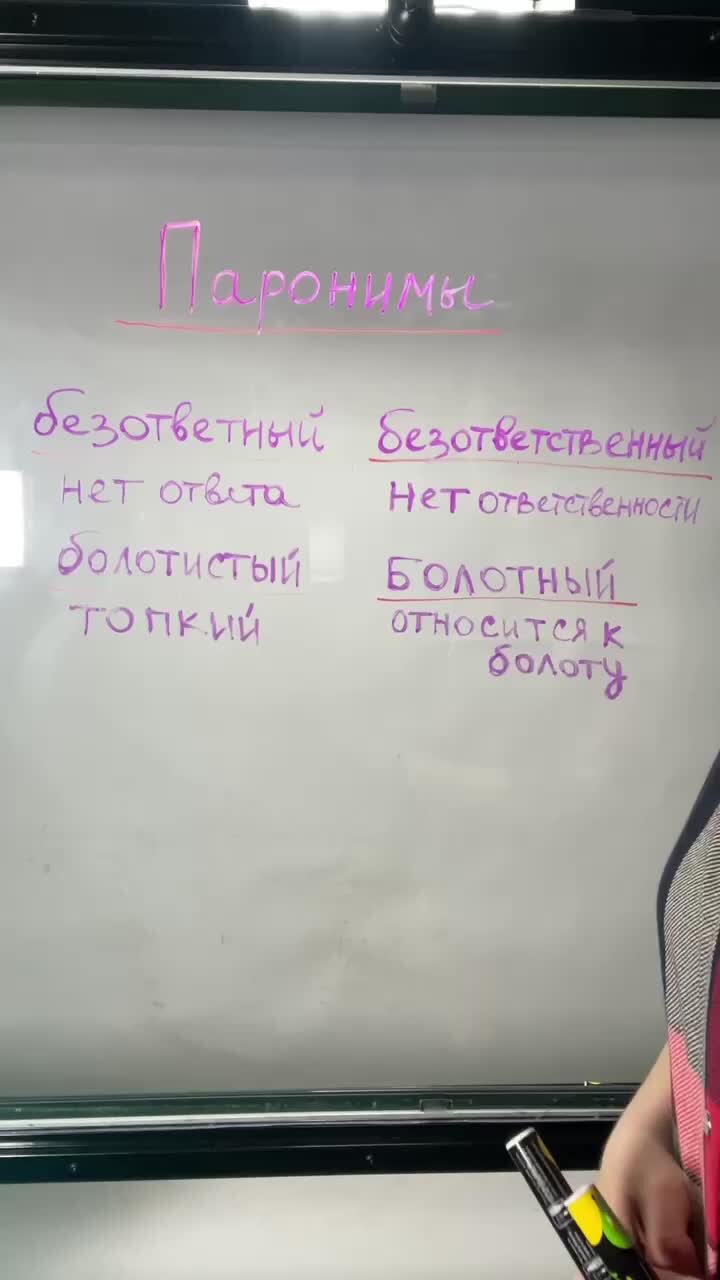 Паронимы
безответный безответственный
нет ответа нет ответственности
болотистый Болотный
топкий относится к
болоту